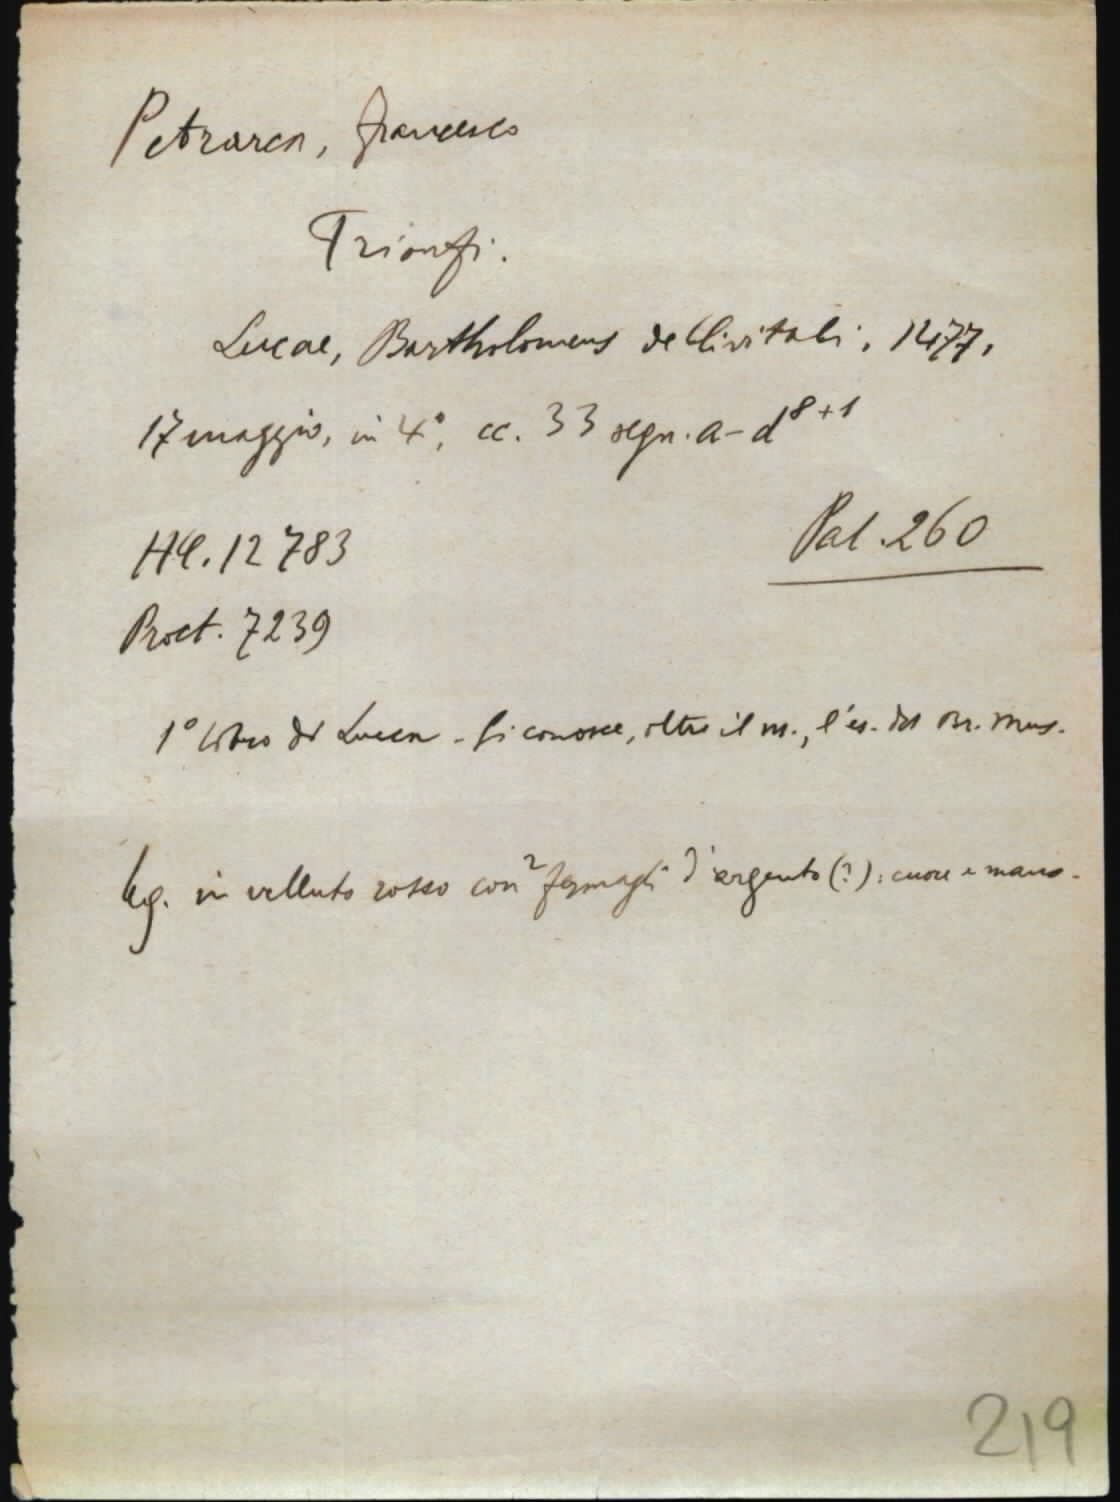 Petrarca, Francesco
Trionfi.
Lucae, Bartholomeus de Civitali, 1477,
17 maggio, in 4°, cc. 33 segn. a-d⁸⁺¹
HC. 12783
Pal. 260
Proct. 7239
1° libro di Lucca - Si conosce, oltre il ns., l'es. del Br. Mus.
leg. in velluto rosso con 2 fermagli d'argento (?): cuore e mano.
219